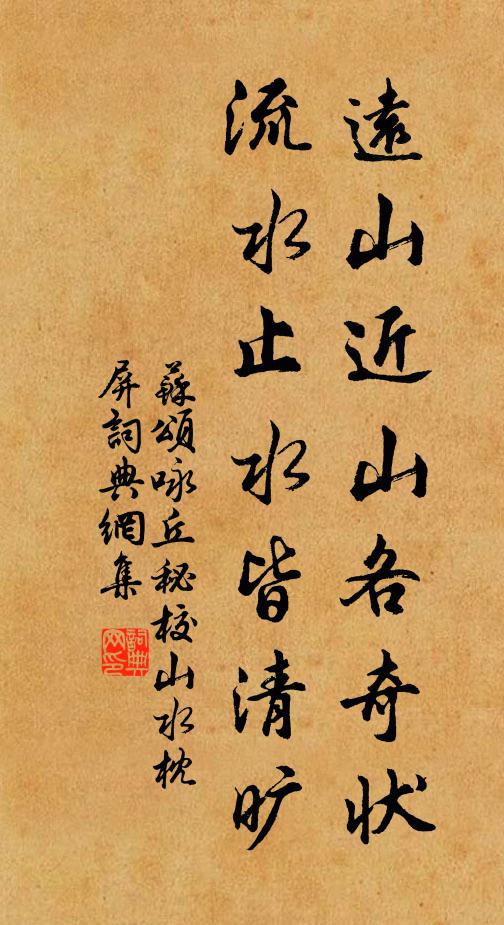 遠山近山各奇狀
流水止水皆清旷
蘇頌咏丘秘校山水枕
屏詞典網集
詞典
网印